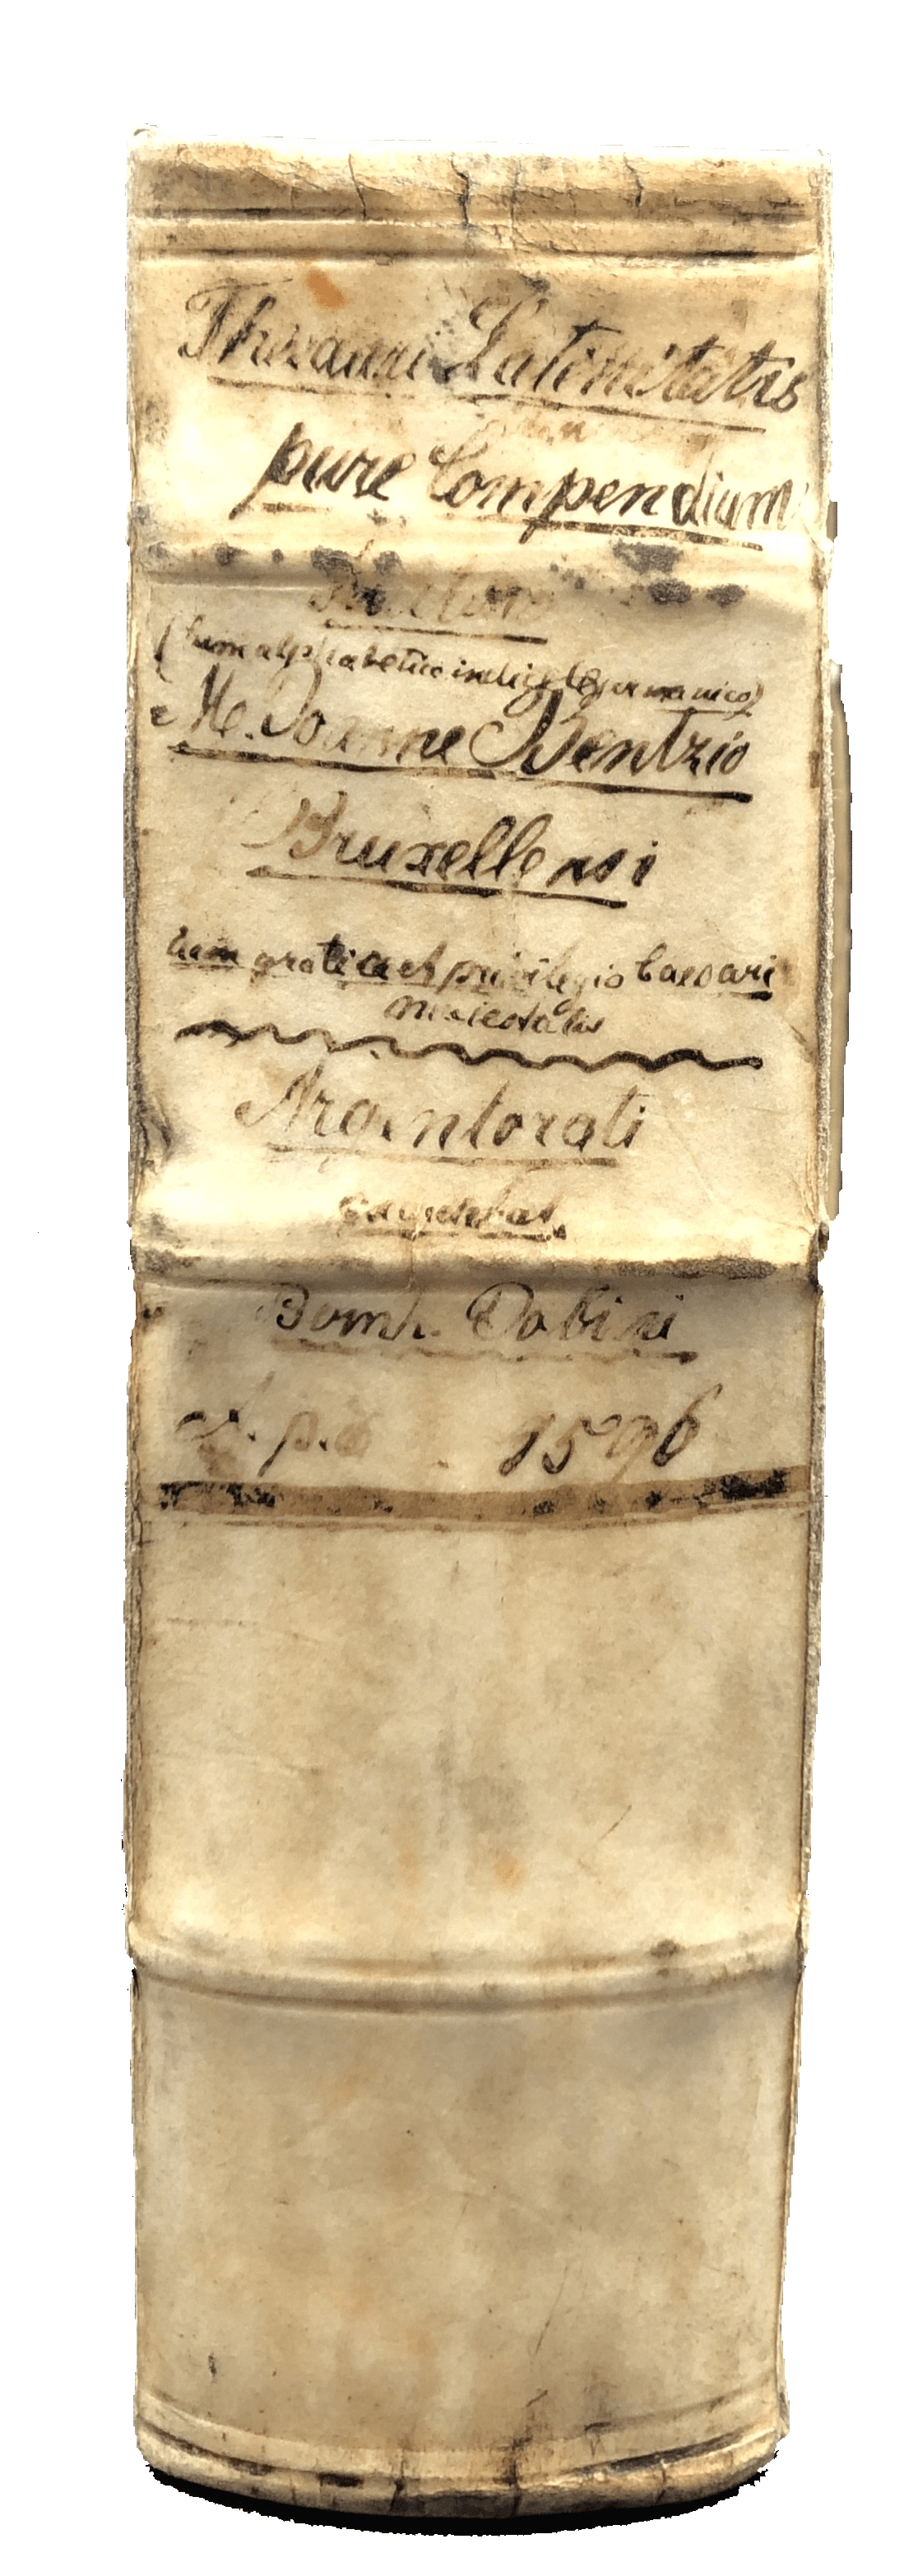 Thesauri Latinitatis
pure Compendium
(cum alphabetico indice germanico)
M. Joanne Bentzio
Bruxellensi
cum gratia et privilegio Caesari
maiestatis
Argentorati
excudebat
1596